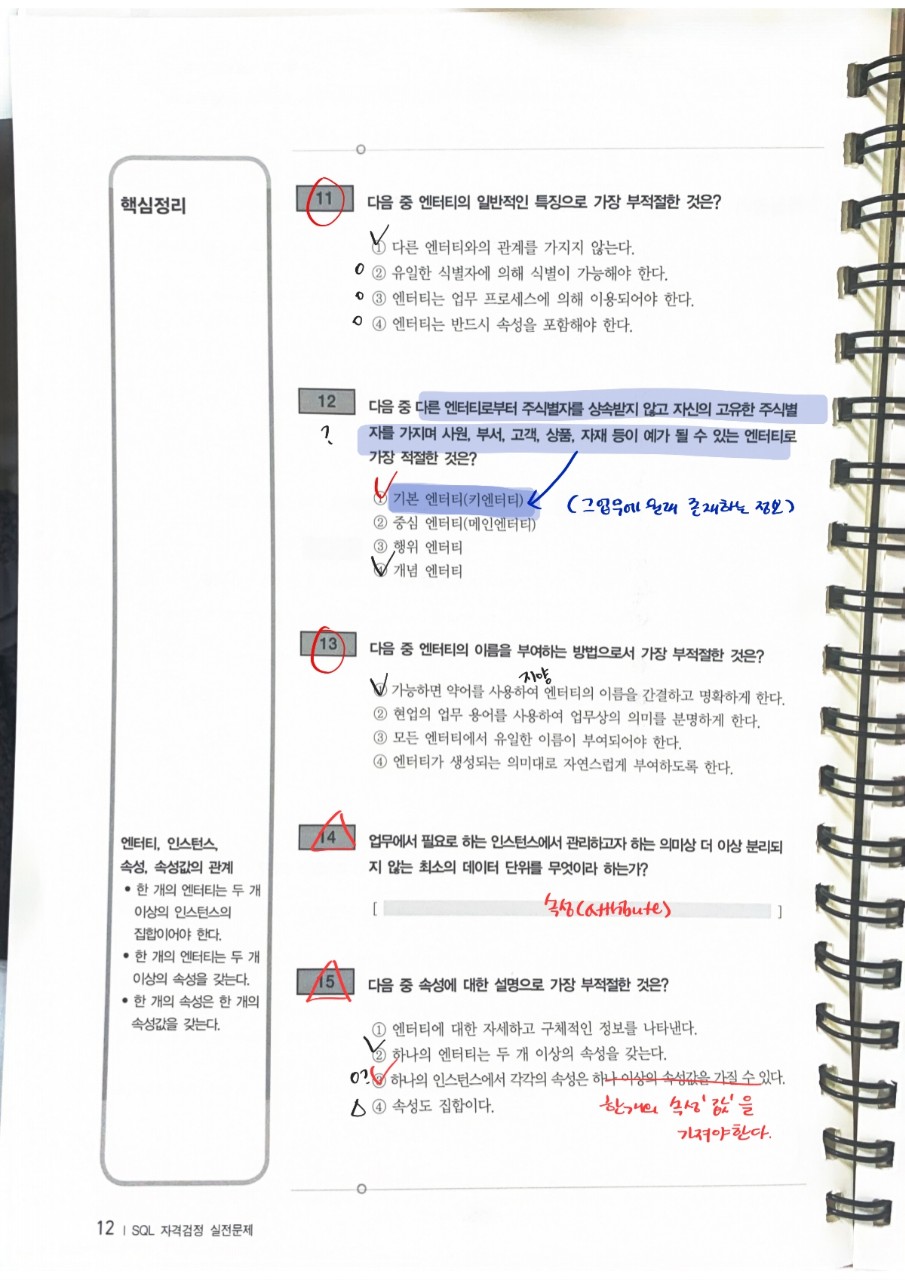 핵심정리
11 다음 중 엔터티의 일반적인 특징으로 가장 부적절한 것은?
① 다른 엔터티와의 관계를 가지지 않는다.
② 유일한 식별자에 의해 식별이 가능해야 한다.
③ 엔터티는 업무 프로세스에 의해 이용되어야 한다.
④ 엔터티는 반드시 속성을 포함해야 한다.
12 다음 중 다른 엔터티로부터 주식별자를 상속받지 않고 자신의 고유한 주식별
?
자를 가지며 사원, 부서, 고객, 상품, 자재 등이 예가 될 수 있는 엔터티로
가장 적절한 것은?
① 기본 엔터티(키엔터티)
(그 업무에 원래 존재하는 정보)
② 중심 엔터티(메인엔터티)
③ 행위 엔터티
④ 개념 엔터티
13 다음 중 엔터티의 이름을 부여하는 방법으로서 가장 부적절한 것은?
지양
① 가능하면 약어를 사용하여 엔터티의 이름을 간결하고 명확하게 한다.
② 현업의 업무 용어를 사용하여 업무상의 의미를 분명하게 한다.
③ 모든 엔터티에서 유일한 이름이 부여되어야 한다.
④ 엔터티가 생성되는 의미대로 자연스럽게 부여하도록 한다.
엔터티, 인스턴스,
속성, 속성값의 관계
• 한 개의 엔터티는 두 개
이상의 인스턴스의
집합이어야 한다.
• 한 개의 엔터티는 두 개
이상의 속성을 갖는다.
• 한 개의 속성은 한 개의
속성값을 갖는다.
14 업무에서 필요로 하는 인스턴스에서 관리하고자 하는 의미상 더 이상 분리되
지 않는 최소의 데이터 단위를 무엇이라 하는가?
[ 속성(attribute) ]
15 다음 중 속성에 대한 설명으로 가장 부적절한 것은?
① 엔터티에 대한 자세하고 구체적인 정보를 나타낸다.
② 하나의 엔터티는 두 개 이상의 속성을 갖는다.
0? ③ 하나의 인스턴스에서 각각의 속성은 하나 이상의 속성값을 가질 수 있다.
④ 속성도 집합이다.
한개의 속성'값'을
가져야한다.
12 | SQL 자격검정 실전문제